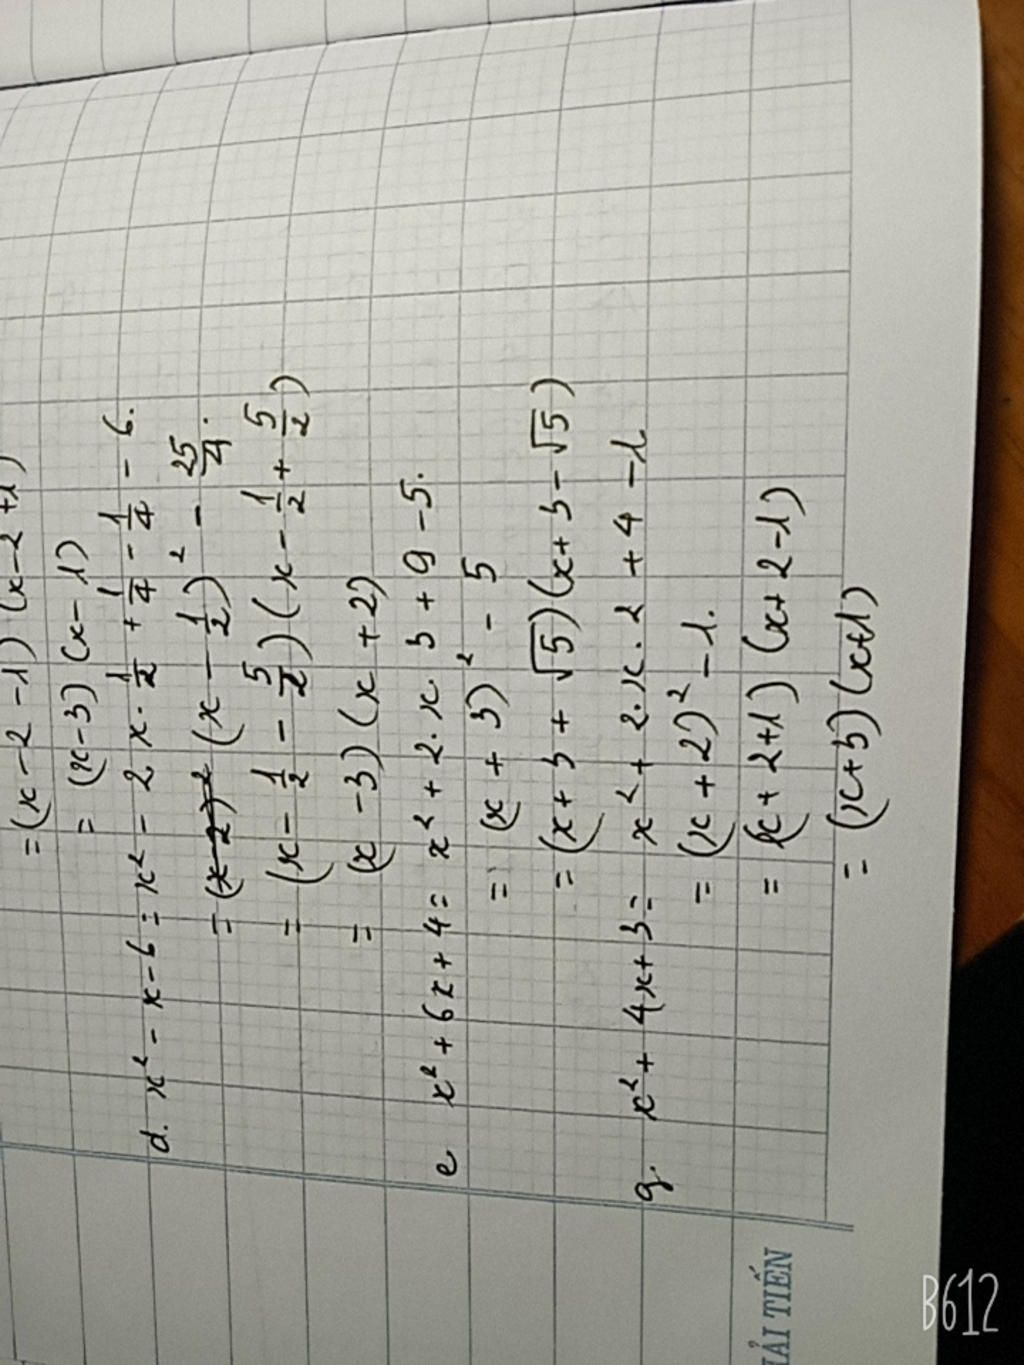 =(x-2-1)(x-2+1)
= (x-3)(x-1)
d. x² - x - 6 = x² - 2 x · 1/2 + 1/4 - 1/4 - 6.
= (x-2)² (x - 1/2)² - 25/4.
= (x - 1/2 - 5/2)(x - 1/2 + 5/2)
= (x - 3)(x + 2)
e x² + 6x + 4 = x² + 2. x. 3 + 9 - 5.
= (x + 3)² - 5
= (x + 3 + √5)(x + 3 - √5)
g. x² + 4x + 3 = x² + 2. x. 2 + 4 - 1
= (x + 2)² - 1.
= (x + 2 + 1)(x + 2 - 1)
= (x + 3)(x + 1)
HẢI TIẾN
B612